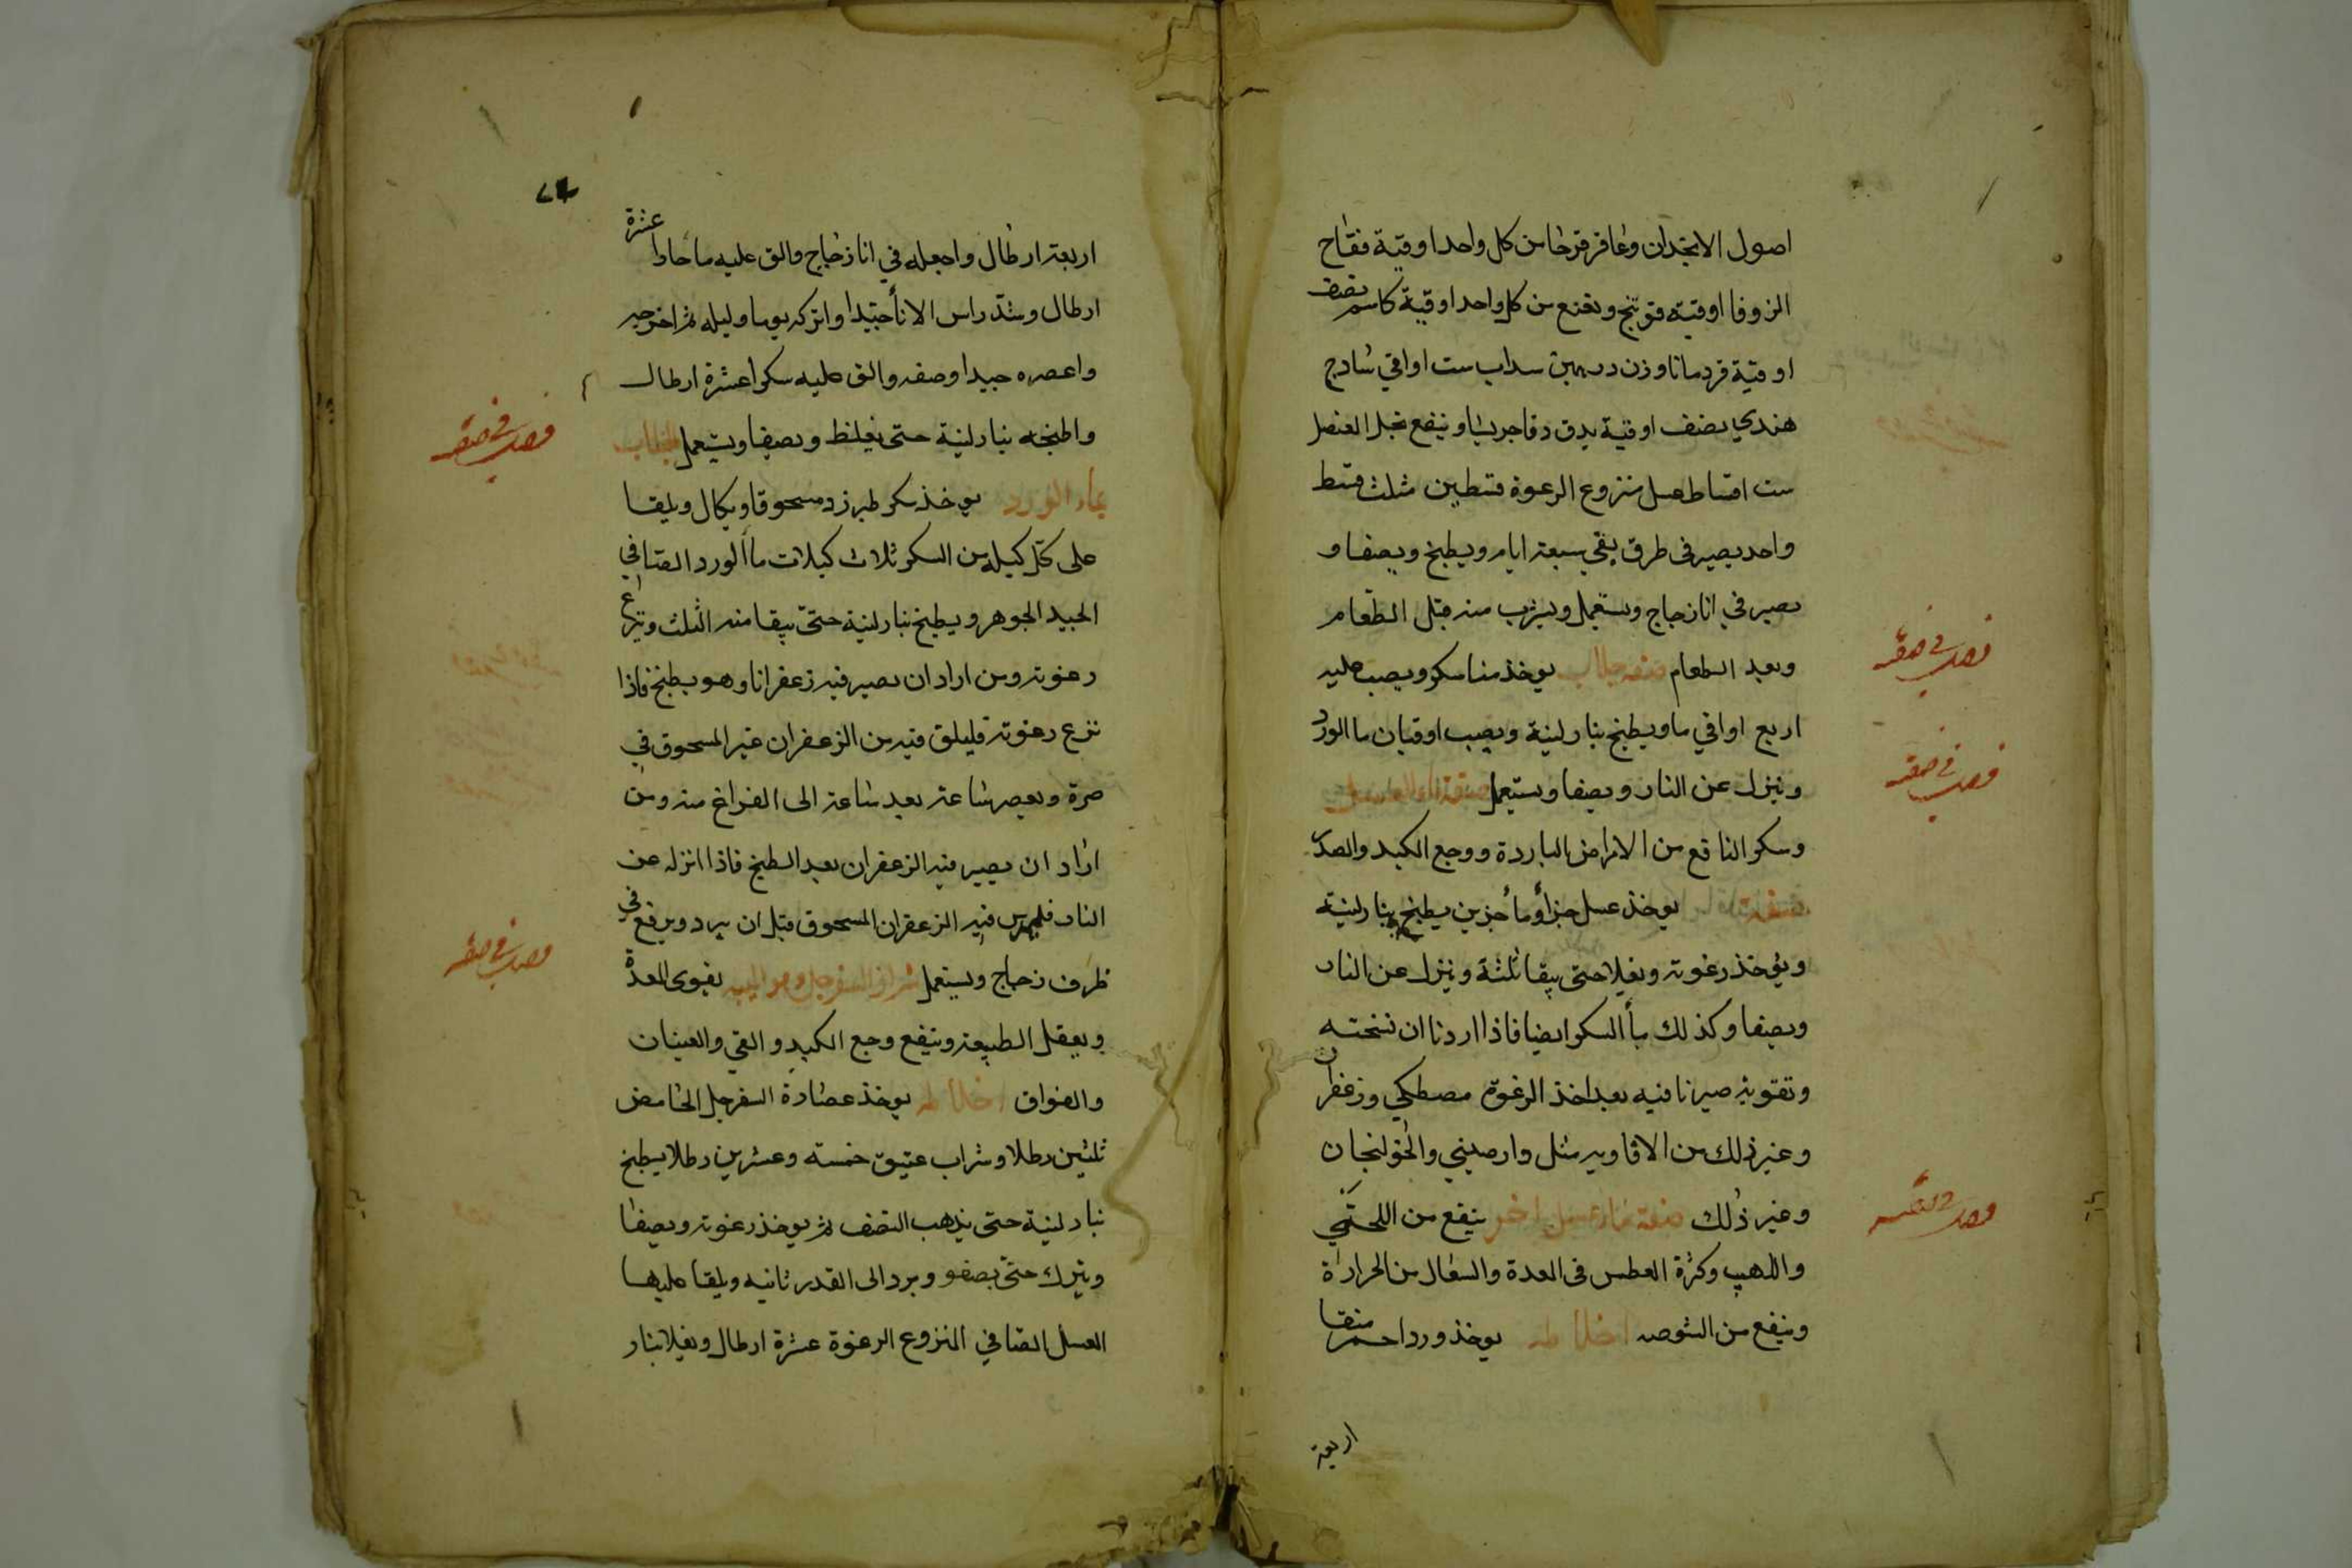 اصول الانجدان وعاقر قرحا من كل واحد اوقية فقاح
الزوفا اوقية فوتنج ونعنع من كل واحد اوقية كاشم نصف
اوقية قردمانا وزن درهمين سداب ست اواقي شادج
هندي نصف اوقية يدق دقا جريشا وينقع بخل العنصل
ست اقساط عسل منزوع الرعوة قسطين مثلث قسط
واحد يصير فى ظرف يقي سبعة ايام ويطبخ ويصفا و
يصير في انا زجاج ويستعمل ويشرب منه قبل الطعام
وبعد الطعام صفة جلاب يوخذ منا سكر ويصب عليه
اربع اواقي ما ويطبخ بنار لينة ويصب اوقيان ما الورد
وينزل عن النار ويصفا ويستعمل صفة ماء العسل
وسكر النافع من الامراض الباردة ووجع الكبد والصدر
يوخذ عسل جزأ وما جزين يطبخ بنار لينة
ويؤخذ رغوته ويغلا حتى يبقا ثلثة وينزل عن النار
ويصفا وكذلك بأ السكر ايضا فاذا اردنا ان نسخنه
وتقويه صيرنا فيه بعد اخذ الرغوة مصطكي وزعفران
وغير ذلك من الافاويه مثل دارصيني والخولنجان
وغير ذلك صفة ماء عسل اخر ينفع من اللحتي
واللهيب وكثرة العطس فى المعدة والسعال من الحرارة
وينفع من الشوصه اخلاطه يوخذ ورد احمر منقا
اربعة
فصل في صفة
فصل في صفة
فصل في صفة
اربعة ارطال واجعله في انا زجاج والق عليه ما حارا عشرة
ارطال وشد راس الانأ جيدا واتركه يوما وليله ثم اخرجه
واعصره جيدا وصفه والق عليه سكرا عشرة ارطال
واطبخه بنار لينة حتى يغلظ ويصفا ويستعمل الجلاب
بماء الورد يوخذ سكر طبرزد مسحوقا ويكال ويلقا
على كل كيله من السكر ثلاث كيلات ماأ الورد الصافي
الجيد الجوهر ويطبخ بنار لينة حتى يبقا منه الثلث وتنزع
رغوته ومن اراد ان يصير فيه زعفرانا وهو يطبخ فاذا
نزع رغوته فليلق فيه من الزعفران غير المسحوق في
صرة ويعصر ساعة بعد ساعة الى الفراغ منه ومن
اراد ان يصير فيه الزعفران بعد الطبخ فاذا انزله عن
النار فليمرس فيه الزعفران المسحوق قبل ان يبرد ويرفع في
ظرف زجاج ويستعمل شراب السفرجل وهو الميبه يقوى المعدة
ويعقل الطبيعة وينفع وجع الكبد والقي والغيثان
والفواق اخلاطه يوخذ عصارة السفرجل الحامض
ثلثين رطلا وشراب عتيق خمسة وعشرين رطلا يطبخ
بنار لينة حتى يذهب النصف ثم يوخذ رغوته ويصفا
ويترك حتى يصفو ويرد الى القدر ثانيه ويلقا عليها
العسل الصافي المنزوع الرغوة عشرة ارطال ويغلا بنار
فصل في صفة
فصل في صفة